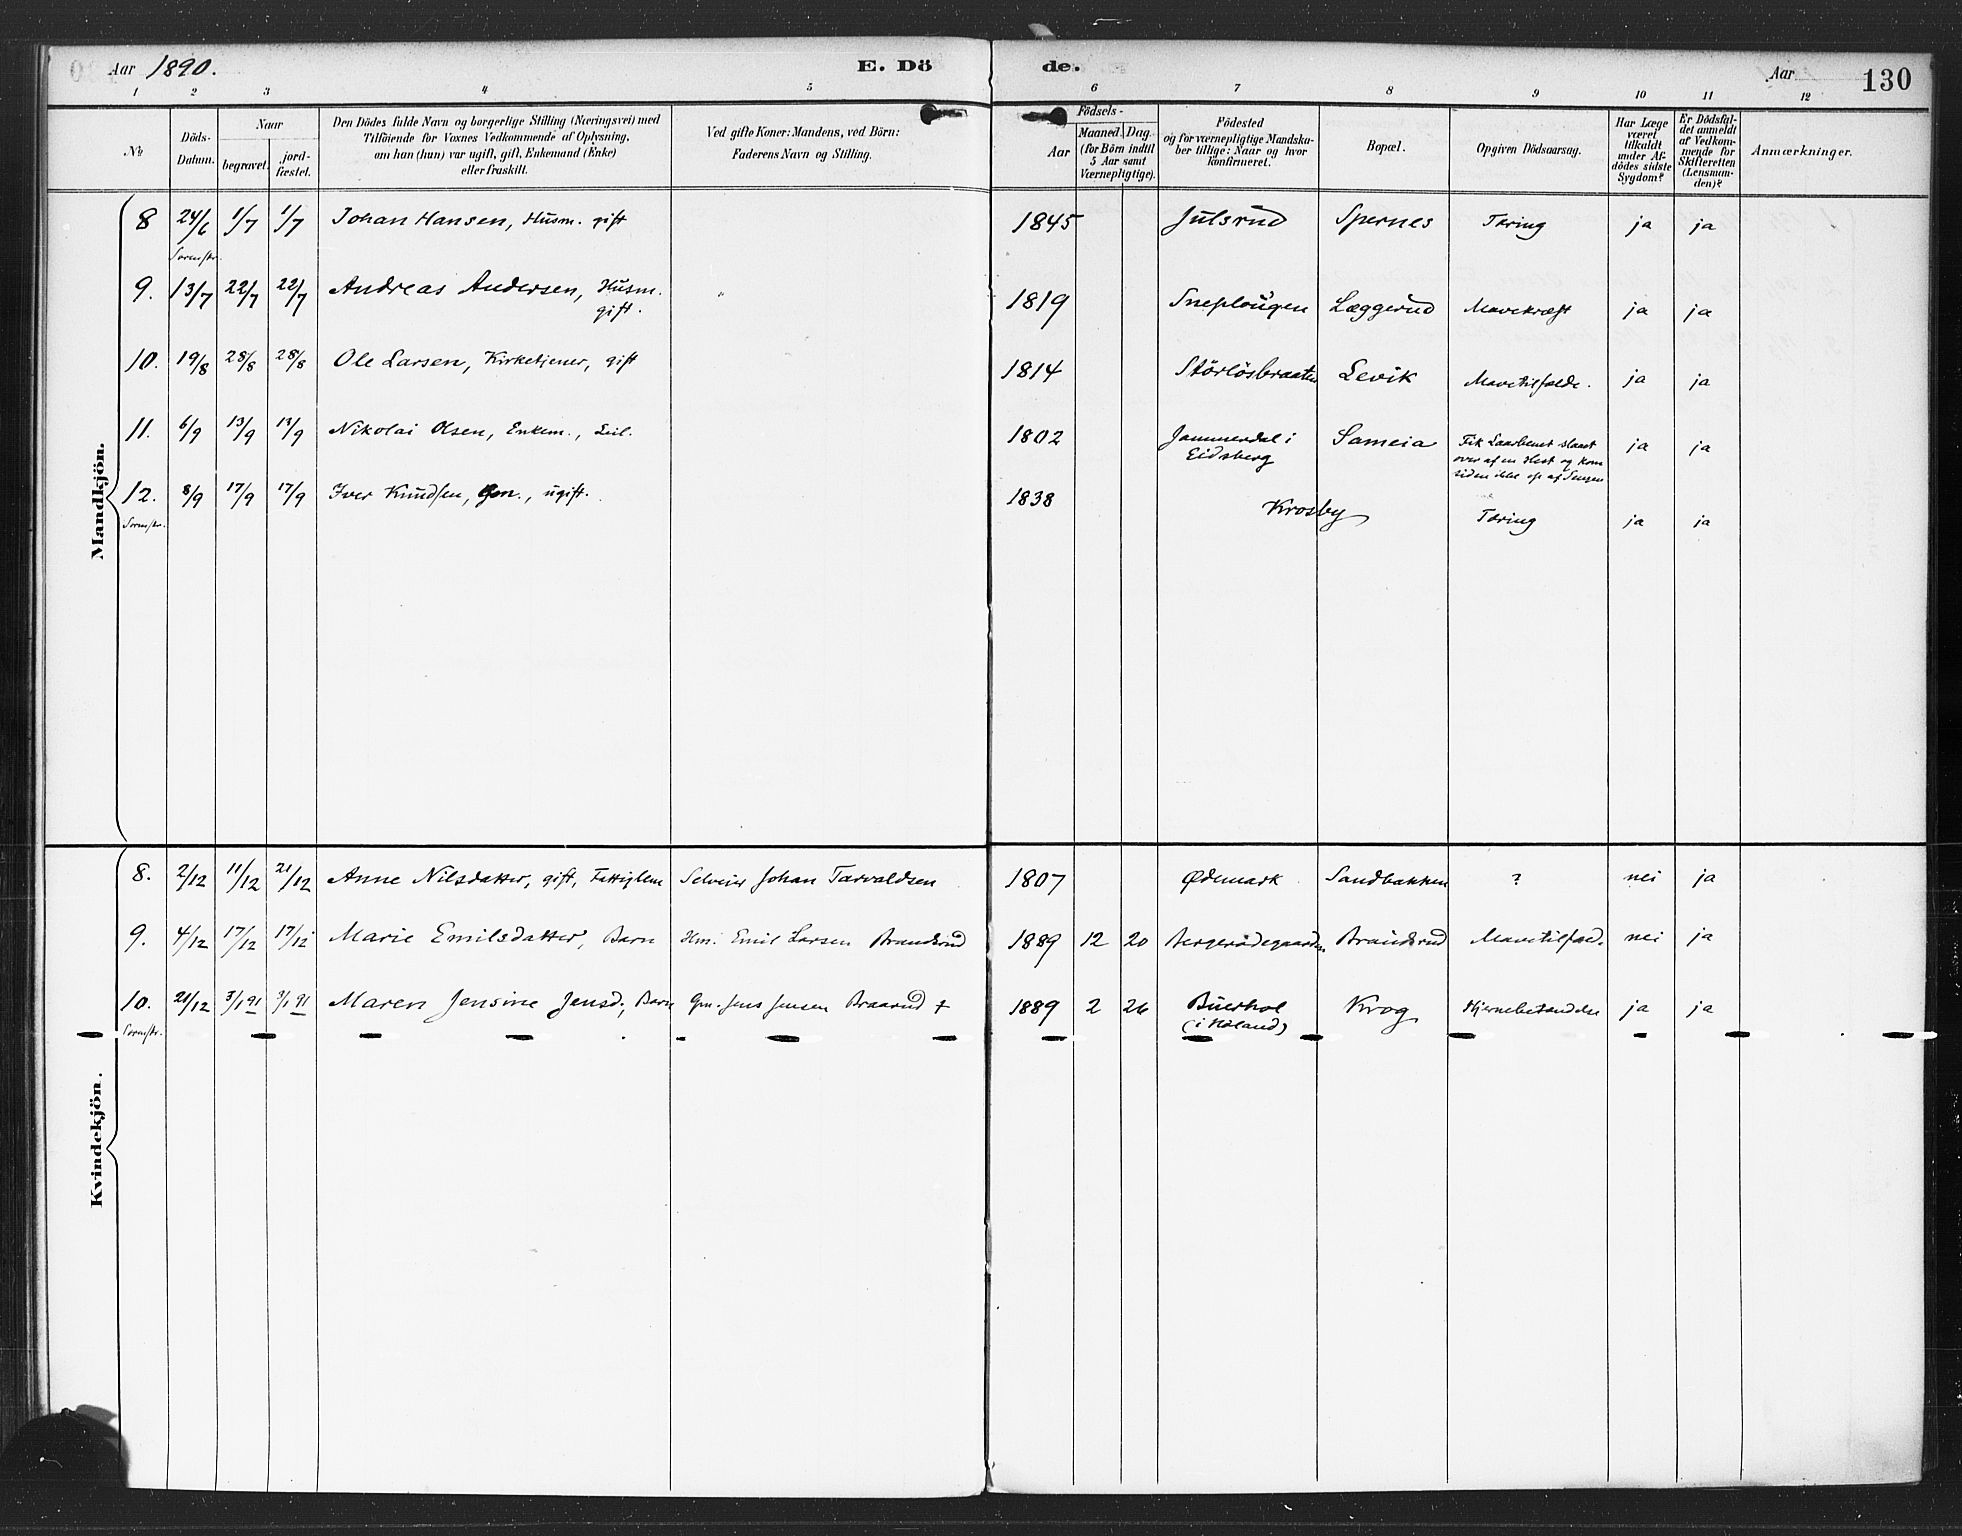 Aar 1890. E. Dö de. Aar 130
1 2 3 4 5 6 7 8 9 10 11 12
№
Döds-Datum.
Naar
begravet.
jord-fæstet.
Den Dödes fulde Navn og borgerlige Stilling (Næringsvei) med
Tilföiende for Voxnes Vedkommende af Oplysning,
om han (hun) var ugift, gift, Enkemand (Enke)
eller fraskilt.
Ved gifte Koner: Mandens, ved Börn:
Faderens Navn og Stilling.
Födsels-
Aar
Maaned. Dag.
(for Börn indtil
5 Aar samt
Værnepligtige).
Födested
og for værnepligtige Mandska-
ber tillige: Naar og hvor
konfirmeret.
Bopæl.
Opgiven Dödsaarsag.
Har Læge
været
tilkaldt
under Af-
dödes sidste
Sygdom?
Er Dödsfal-
det anmeldt
af Vedkom-
mende for
Skifteretten
(Lensman-
den)?
Anmærkninger.
Mandkjön.
8 24/6 1/7 1/7 Johan Hansen, Husm. gift 1845 Julsrud Spernes Tæring ja ja
9. 13/7 22/7 22/7 Andreas Andersen, Husm. " 1819 Sneplougen Læggerud Mavekræft ja ja
gift.
10. 19/8 28/8 28/8 Ole Larsen, Kirketjener, gift 1814 Störlösbraaten Levik Mavetilfælde. ja ja
11. 6/9 13/9 13/9 Nikolai Olsen, Enkem., 1802 Jammerdal i Sameia Fik Laarbenet slaaet ja ja
Eidsberg over af en Hest og kom
siden ikke op af Sengen
12. 8/9 17/9 17/9 Iver Knudsen, Gm., ugift. 1838 Krosby Tæring ja ja
Kvindekjön.
8. 2/12 11/12 21/12 Anne Nilsdatter, gift, Fattiglem Selveier Johan Tarvaldsen 1807 Ødemark Sandbakken ? nei ja
9. 4/12 17/12 17/12 Marie Emilsdatter, Barn Hm. Emil Larsen Brandsrud 1889 12 20 Bergerödegaarden Brandsrud Mavetilfæl. nei ja
10. 21/12 3/1 91 3/1 91 Maren Jensine Jensd., Barn Gm. Jens Jensen Braarud + 1889 2 26 Buerhol Krog Hjernebetændelse ja ja
(i Höland)